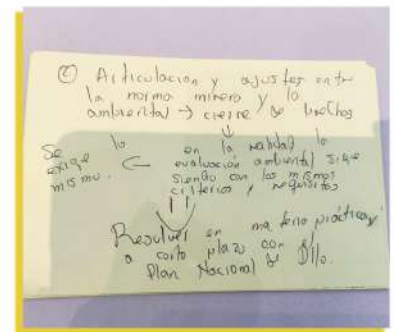 ② Articulación y ajustes entre
la norma minero y lo
ambiental → cierre de brechas
↓
en la realidad lo
evaluación ambiental sigue
siendo con los mismos
criterios y requisitos
Se exige lo
mismo. ←
Resolver en materia práctica y
a corto plazo con el
Plan Nacional de Dllo.